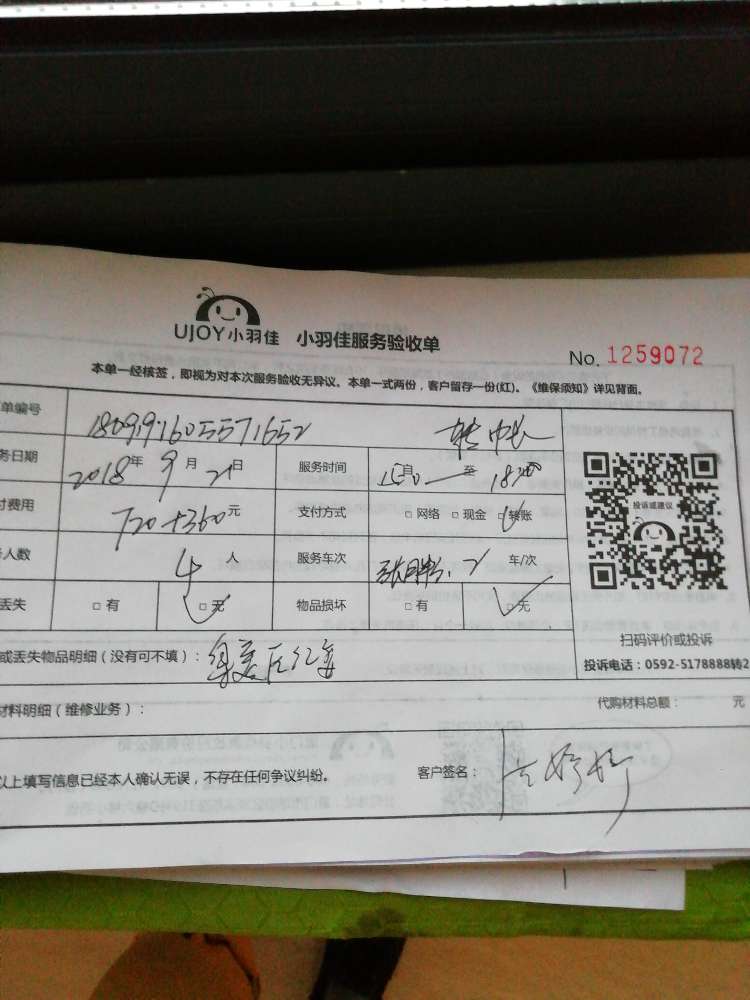 UJOY小羽佳 小羽佳服务验收单
No. 1259072
本单一经核签，即视为对本次服务验收无异议。本单一式两份，客户留存一份(红)。《维保须知》详见背面。
单编号 18091916055571652
务日期 2018年9月21日 服务时间 至 18:00
付费用 720+360元 支付方式 □网络 □现金 □转账
人数 4人 服务车次 车/次
丢失 □有 □无 物品损坏 □有 □无
投诉或建议
扫码评价或投诉
投诉电话：0592-5178888转2
或丢失物品明细（没有可不填）：
材料明细（维修业务）： 代购材料总额： 元
以上填写信息已经本人确认无误，不存在任何争议纠纷。 客户签名：